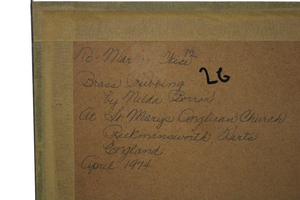 To: Mar
26
Brass Rubbing
by Nelda
At St Marys Anglican Church
Rickmansworth Herts
England
April 1974